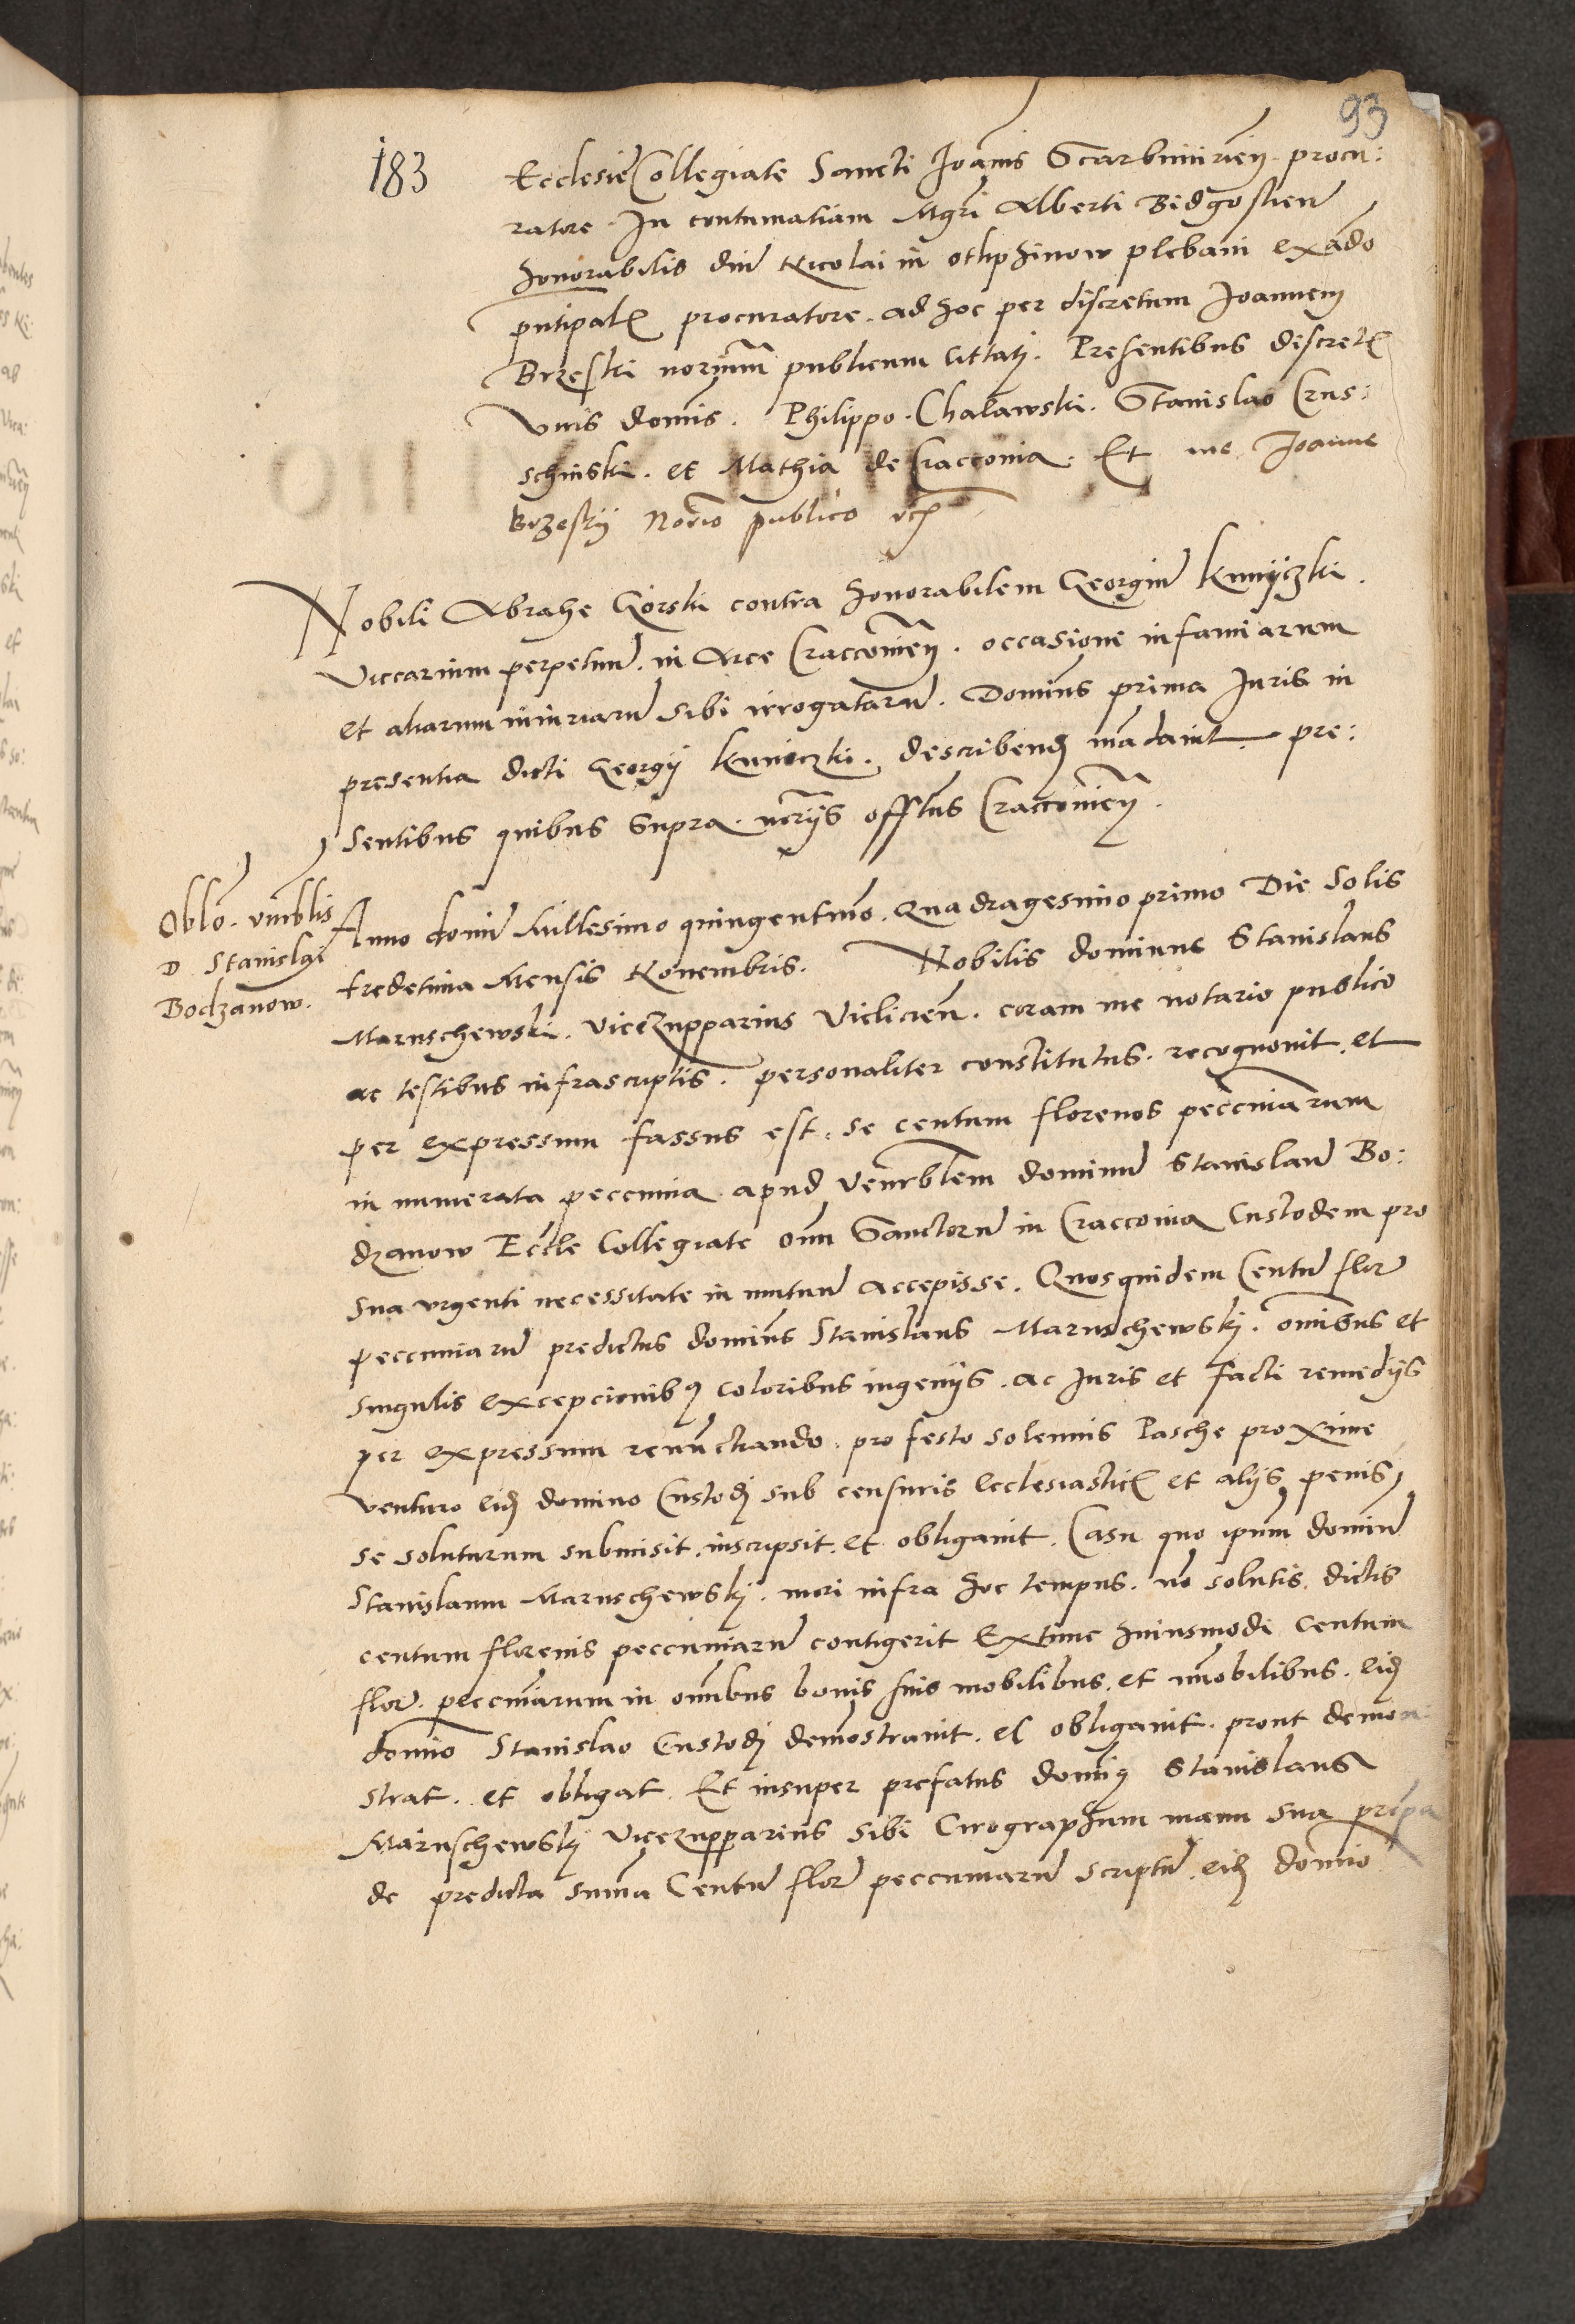 93
183
Ecclesie Collegiate Sancti Joannis Scarbimirien procu:
ratore. In contumatiam Mgri Alberti Bidgostien
honorabilis dni Nicolai in othphinow plebani ex ad̄o
pntipalis procuratore. ad hoc per discretum Joannem
Brzeski norium publicum Cittati. Presentibus discretis
viris dominis. Philippo. Chalawski. Stanislao Crus:
schinski. et Mathia de Craccovia. Et me Joanne
Brzesky Norio publico etc
Nobili Abrahe Gorski contra honorabilem Georgiu Kunyczki.
viccarium perpetuu. in Arce Craccovien. occasione infamiarum
et aliarum iniuriaru sibi irrogataru. Dominus prima Juris in
presentia dicti Georgy Kuniczki. describend mandavit. pre:
sentibus quibus supra. norys offitus Craccovien.
Oblo. vnrblis
D Stanislai
Bodzanow.
Anno domini Millesimo quingentmo. Quadragesimo primo Die Solis
tredetima Mensis Novembris. Nobilis dominus Stanislaus
Maruschewski. vicezupparius Vielicien. coram me notario publico
ac testibus infrascriptis. personaliter constitutus. recognovit. et
per expressum fassus est. se centum florenos peccuniarum
in numerata peccunia apud venrblem dominu Stanislau Bo:
dzanow Eccle Collegiate omn Sanctoru in Craccovia Custodem pro
sua vrgenti necessitate in mutuu accepisse. Quosquidem Centu flor
peccuniaru predictus dominus Stanislaus Maruschewskj. omnibus et
singulis excepcionibus coloribus ingenys. ac Juris et facti remedys
per expressum renunctiando. pro festo solennis Pasche proxime
venturo eid domino Custodj sub censuris ecclesiasticis et alys penis,
se soluturum submisit. inscripsit. et obligavit. Casu quo ipsum dominu
Stanislaum Maruschewskj. mori infra hoc tempus. no solutis dictis
centum florenis peccuniaru contigerit Extunc huiusmodi centum
flor. peccuniarum in omnibus bonis suis mobilibus. et immobilibus. eid
domino Stanislao Custodj demostravit. et obligavit. prout demon:
strat. et obligat. Et insuper prefatus dominus Stanislaus
Maruschewskj vicezupparius sibi Cirographum manu sua propa
de predicta summa Centu flor peccuniaru scriptu. eid domino